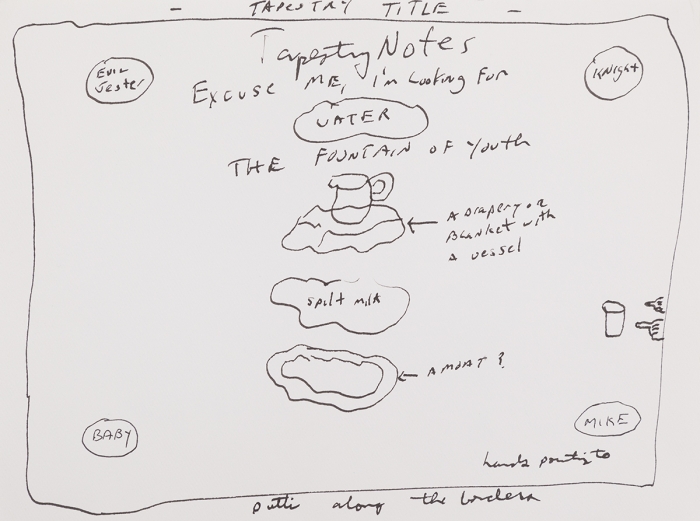 - TAPESTRY TITLE -
Tapestry Notes
EVIL
Jester
KNIGHT
EXCUSE ME, I'm Looking For
WATER
THE FOUNTAIN OF YOUTH
A DRAPERY OR
BLANKET WITH
A VESSEL
spilt milk
A MOAT?
BABY
MIKE
hands pointing to
putti along the borders